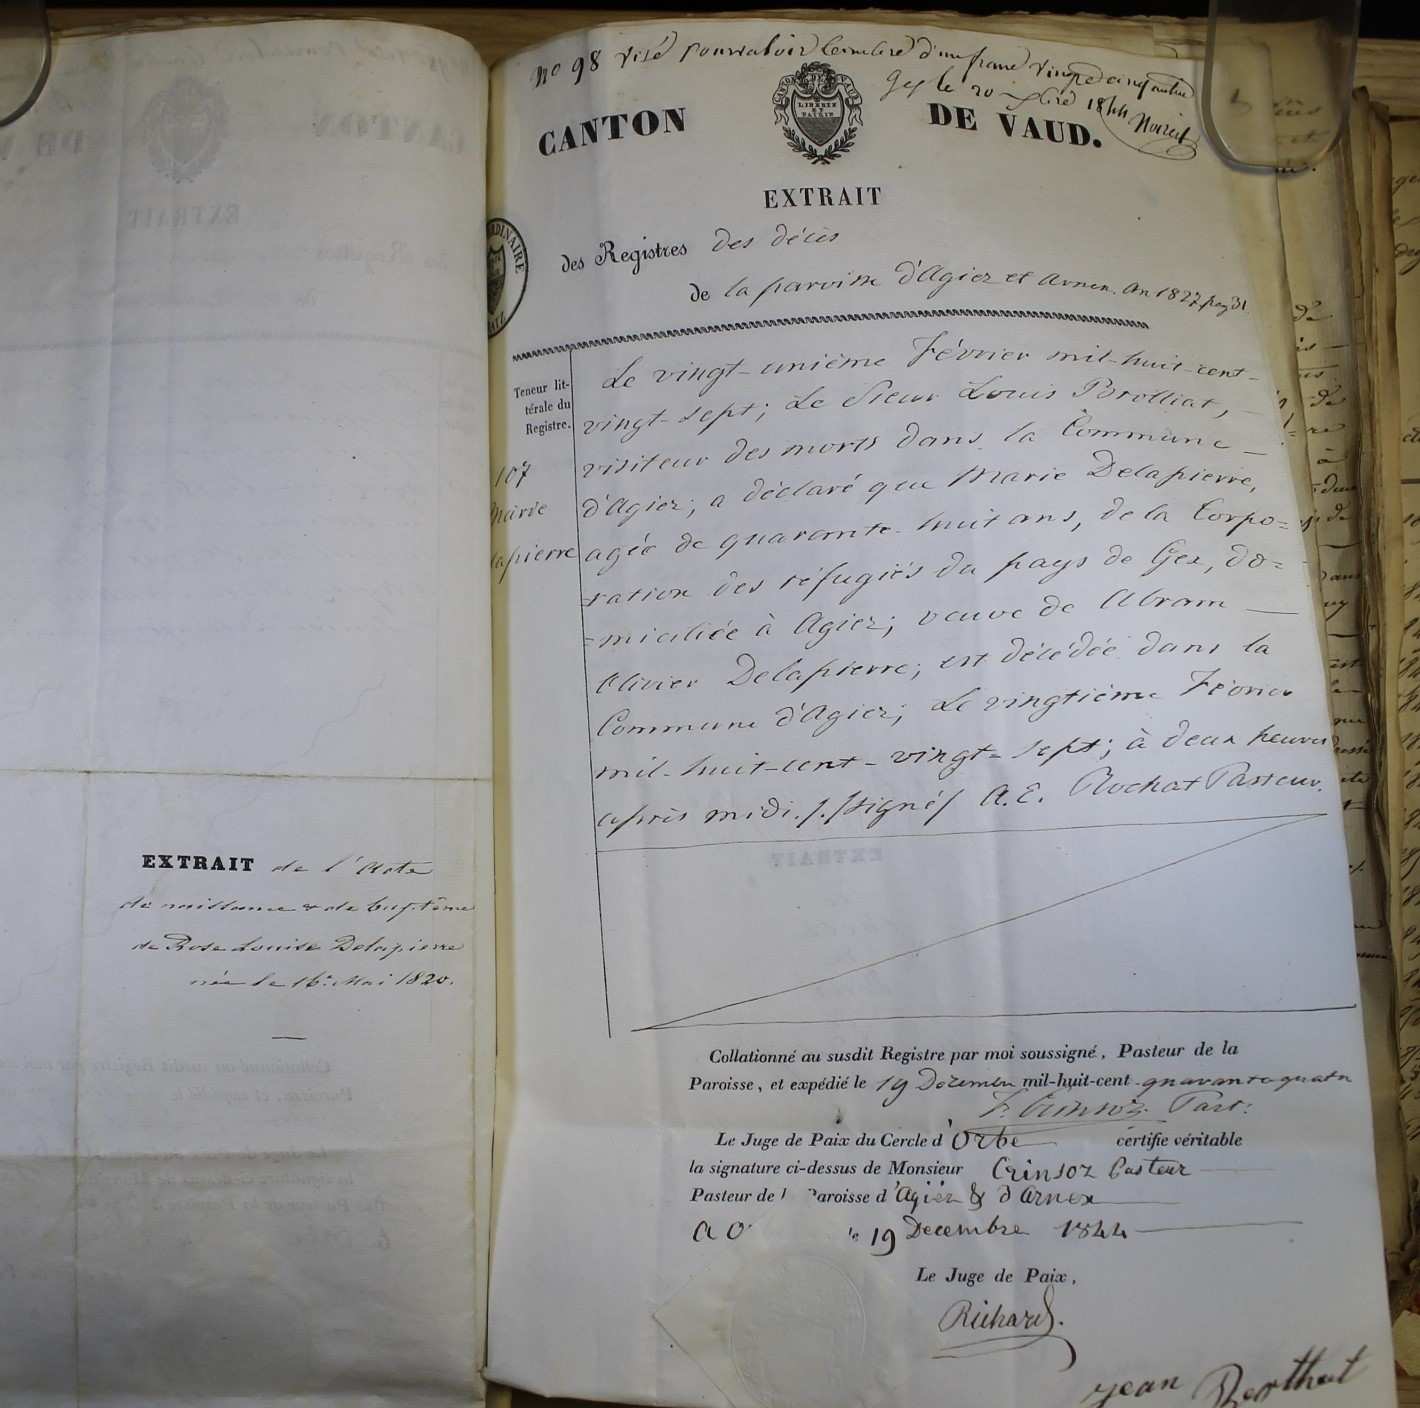 EXTRAIT de l'Acte
de naissance & de baptême
de Rose Louise Delapierre
née le 16e Mai 1820.
No 98 visé pour valoir timbre d'un franc vingt cinq centimes
Gex le 20 Xbre 1844
CANTON DE VAUD.
LIBERTÉ ET PATRIE
EXTRAIT
des Registres des décès
de la paroisse d'Agiez et Arnex. An 1827. pag 31
Teneur lit-
térale du
Registre.
107
Marie
lapierre
Le vingt-unième Février mil-huit-cent-
vingt-sept; Le Sieur Louis
visiteur des morts dans la Commune
d'Agiez; a déclaré que Marie Delapierre,
agée de quarante-huit ans, de la Corpo=
=ration des réfugiés du pays de Gex, do=
=miciliée à Agiez; veuve de Abram
Olivier Delapierre; est décédée dans la
Commune d'Agiez; Le vingtième Février
mil-huit-cent-vingt-sept; à deux heures
après midi./. /signé/ A. E. Rochat Pasteur.
Collationné au susdit Registre par moi soussigné, Pasteur de la
Paroisse, et expédié le 19 Décembre mil-huit-cent quarante quatre
Crinsoz. Past:
Le Juge de Paix du Cercle d'Orbe certifie véritable
la signature ci-dessus de Monsieur Crinsoz Pasteur
Pasteur de l aroisse d'Agiez & d'Arnex
a O le 19 Decembre 1844
Le Juge de Paix,
Richard.
Jean Berthet